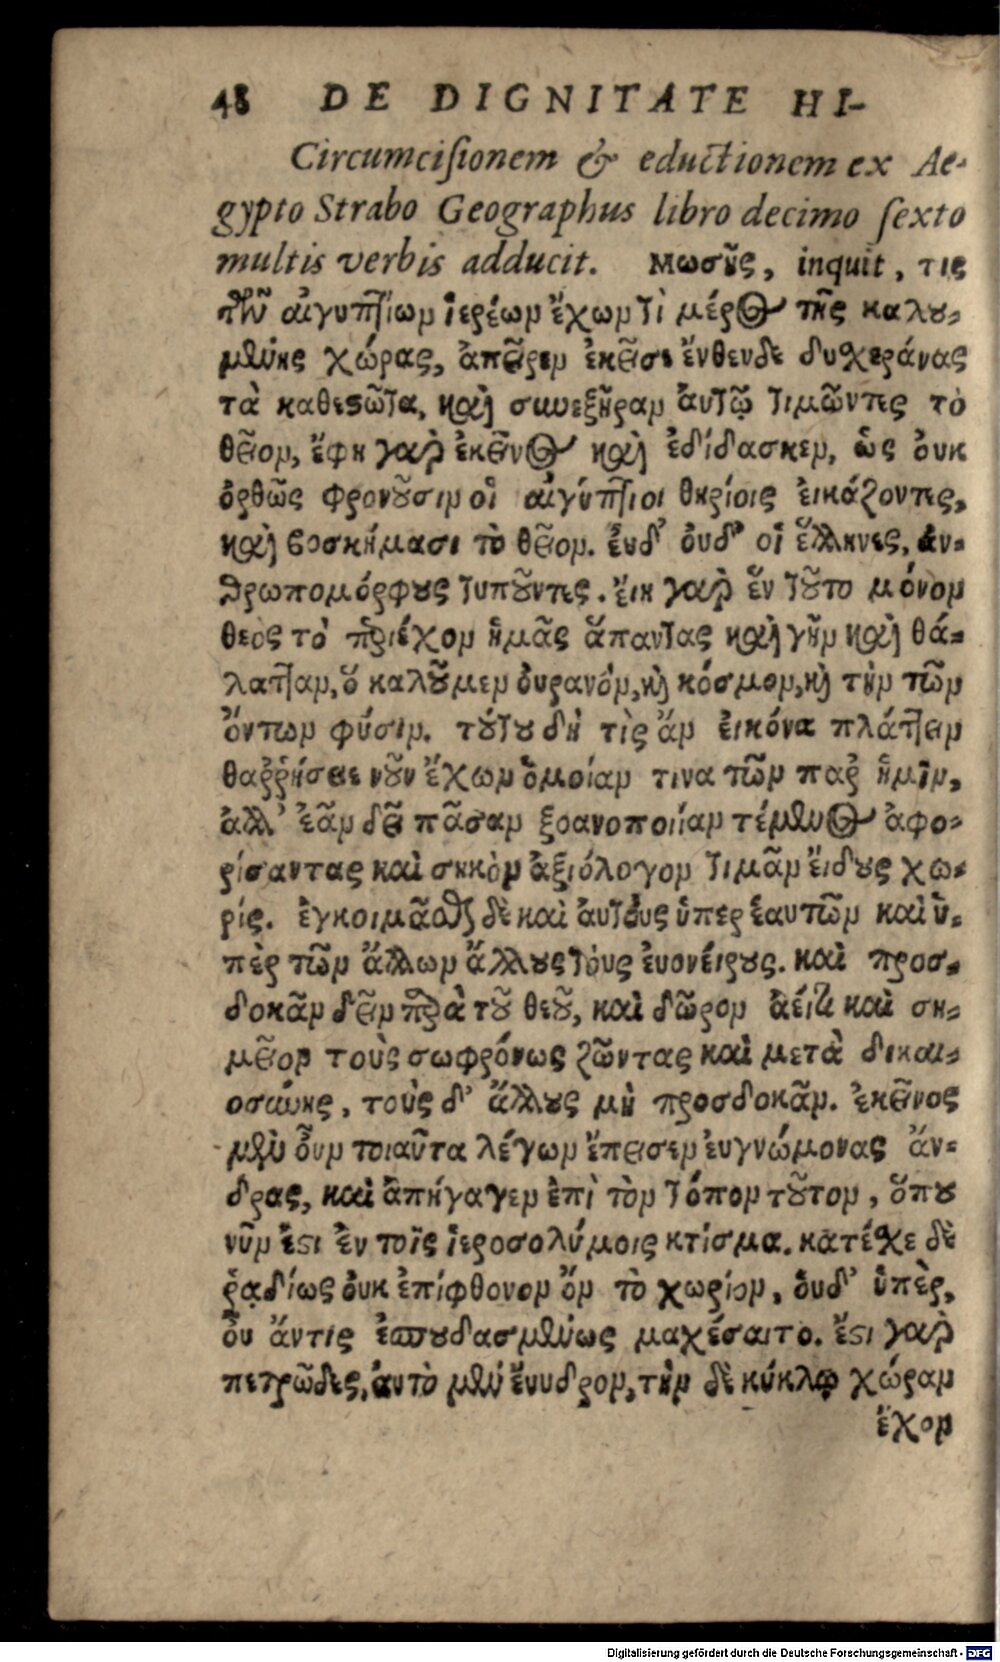 48 DE DIGNITATE HI-
Circumcisionem & eductionem ex Ae-
gypto Strabo Geographus libro decimo sexto
multis verbis adducit. Μωσῆς, inquit, τις
τῶν αἰγυπτίων ἱερέων ἔχων τὶ μέρος τῆς καλου-
μένης χώρας, ἀπῆρεν ἐκεῖσε ἔνθενδε δυχεράνας
τὰ καθεστῶτα, καὶ συνεξῆραν ἀυτῷ τιμῶντες τὸ
θεῖον, ἔφη γὰρ ἐκεῖνος καὶ ἐδίδασκεν, ὡς ὀυκ
ὀρθῶς φρονοῦσιν οἱ αἰγύπτιοι θηρίοις ἐικάζοντες,
καὶ βοσκήμασι τὸ θεῖον. ἐυδ' ὀυδ' οἱ ἕλληνες, ἀν-
θρωπομόρφους τυποῦντες. ἔιη γὰρ ἓν τοῦτο μόνον
θεὸς τὸ περιέχον ἡμᾶς ἅπαντας καὶ γῆν καὶ θά-
λατταν, ὅ καλοῦμεν ὀυρανὸν, καὶ κόσμον, καὶ τὴν τῶν
ὄντων φύσιν. τούτου δὴ τὶς ἂν ἐικόνα πλάττειν
θαῤῥήσειε νοῦν ἔχων ὁμοίαν τινα τῶν παρ ἡμῖν,
ἀλλ' ἐᾶν δεῖ πᾶσαν ξοανοποιίαν τέμενος ἀφο-
ρίσαντας καὶ σηκὸν ἀξιόλογον τιμᾶν ἔιδους χω-
ρίς. ἐγκοιμᾶσθαι δὲ καὶ ἀυτοὺς ὑπερ ἑαυτῶν καὶ ὑ-
πὲρ τῶν ἄλλων ἄλλους τοὺς ἐυονείρους. καὶ προσ-
δοκᾶν δεῖν παρὰ τοῦ θεοῦ, καὶ δῶρον ἀεί τι καὶ ση-
μεῖον τοὺς σωφρόνως ζῶντας καὶ μετὰ δικαι-
οσύνης, τοὺς δ' ἄλλους μὴ προσδοκᾶν. ἐκεῖνος
μὲν ὀῦν τοιαῦτα λέγων ἔπεισεν ἐυγνώμονας ἄν-
δρας, καὶ ἀπήγαγεν ἐπὶ τὸν τόπον τοῦτον, ὅπου
νῦν ἐστι ἐν τοῖς ἱεροσολύμοις κτίσμα. κατέχε δὲ
ῥᾳδίως ὀυκ ἐπίφθονον ὂν τὸ χωρίον, ὀυδ' ὑπὲρ,
ὁυ ἄντις ἐσπουδασμένως μαχέσαιτο. ἔστι γὰρ
πετρῶδες, ἀυτὸ μὲν ἔνυδρον, τὴν δὲ κύκλῳ χώραν
ἔχον
Digitalisierung gefördert durch die Deutsche Forschungsgemeinschaft - DFG